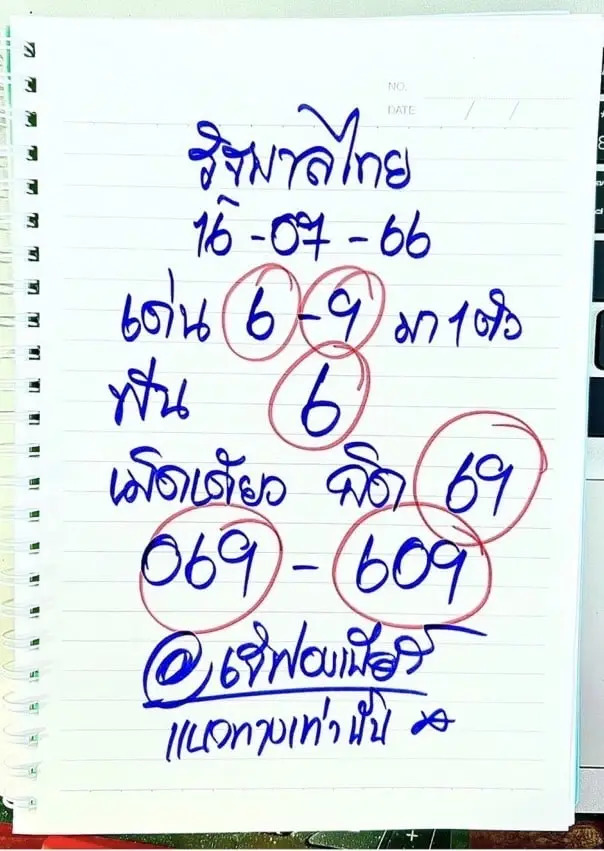 NO.
DATE / /
รัฐบาลไทย
16-07-66
เด่น 6-9 มา 1 ตัว
ฟัน 6
เม็ดเดียว ชิด 69
069 - 609
แนวทางเท่านั้น